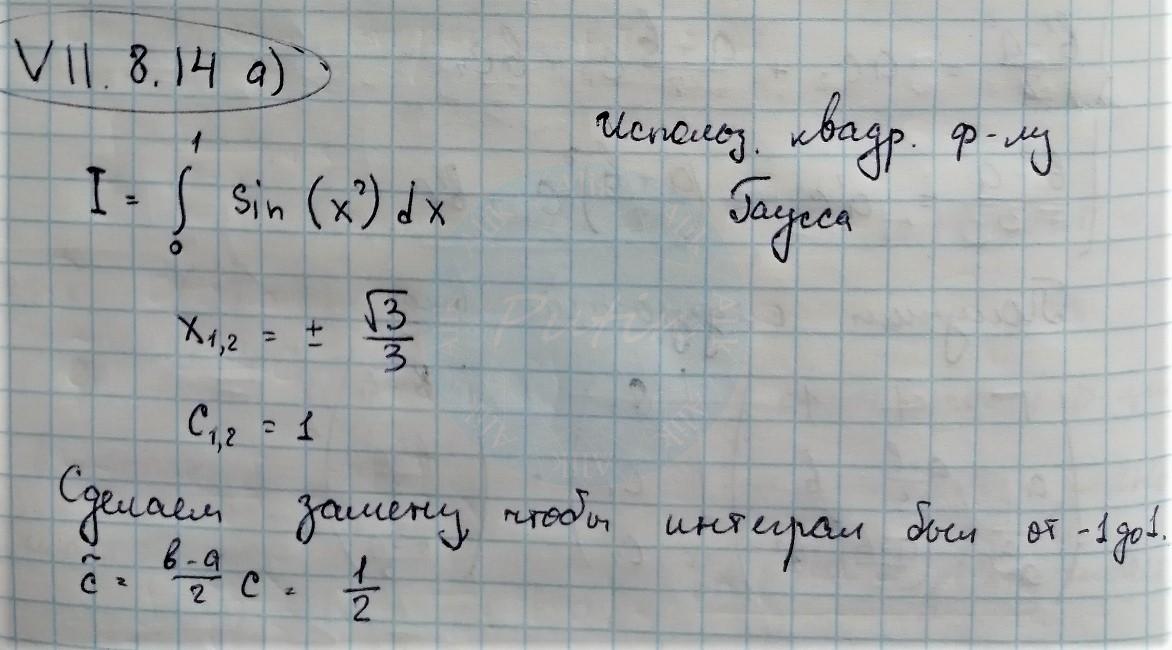 VII. 8.14 а)
Использ. квадр. ф-лу
Гаусса
I = ∫₀¹ sin (x²) dx
x₁,₂ = ± √3/3
C₁,₂ = 1
Сделаем замену, чтобы интеграл был от -1 до 1.
c̃ = (b-a)/2 C = 1/2